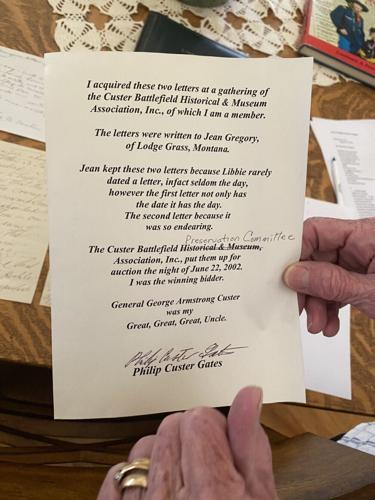 I acquired these two letters at a gathering of
the Custer Battlefield Historical & Museum
Association, Inc., of which I am a member.
The letters were written to Jean Gregory,
of Lodge Grass, Montana.
Jean kept these two letters because Libbie rarely
dated a letter, infact seldom the day,
however the first letter not only has
the date it has the day.
The second letter because it
was so endearing.
Preservation Committee
The Custer Battlefield Historical & Museum,
Association, Inc., put them up for
auction the night of June 22, 2002.
I was the winning bidder.
General George Armstrong Custer
was my
Great, Great, Great, Uncle.
Philip Custer Gates
Philip Custer Gates